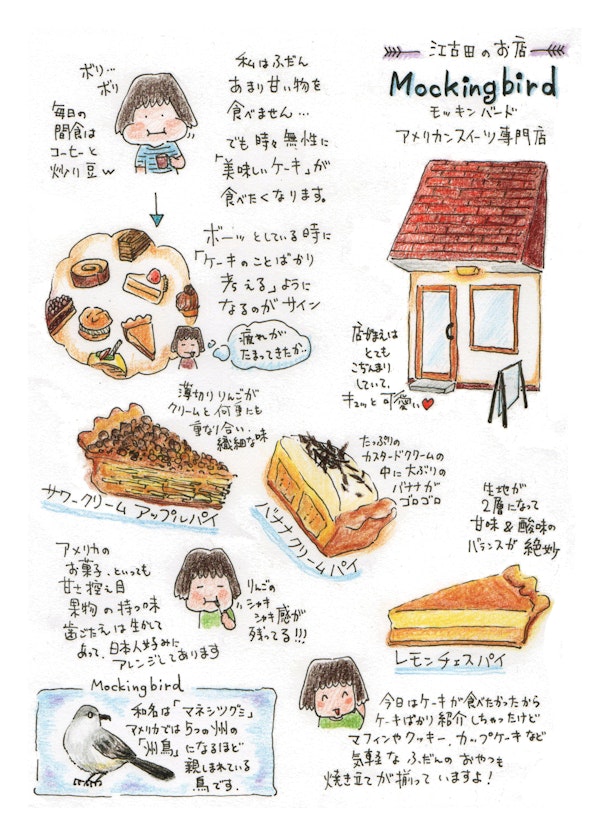 江古田のお店
Mockingbird
モッキンバード
アメリカンスイーツ専門店
私はふだん
あまり甘い物を
食べません…
でも時々無性に
「美味しいケーキ」が
食べたくなります。
ボリ…
ボリ
毎日の
間食は
コーヒーと
炒り豆w
ボーッとしている時に
「ケーキのことばかり
考える」ように
なるのがサイン
疲れが
たまってきたか…
店がまえは
とても
こぢんまり
していて、
キュッと可愛い♥
薄切りりんごが
クリームと何重にも
重なり合い、
繊細な味
サワークリームアップルパイ
たっぷりの
カスタードクリームの
中に大ぶりの
バナナが
ゴロゴロ
バナナクリームパイ
生地が
2層になって
甘味&酸味の
バランスが絶妙
レモンチェスパイ
アメリカの
お菓子、といっても
甘さ控え目
果物の持つ味
歯ごたえは生かして
あって、日本人好みに
アレンジしてあります
りんごの
シャキ
シャキ感が
残ってる!!!
Mockingbird
和名は「マネシツグミ」
アメリカでは5つの州の
「州鳥」になるほど
親しまれている
鳥です.
今日はケーキが食べたかったから
ケーキばかり紹介しちゃったけど
マフィンやクッキー、カップケーキなど
気軽なふだんのおやつも
焼き立てが揃っていますよ!